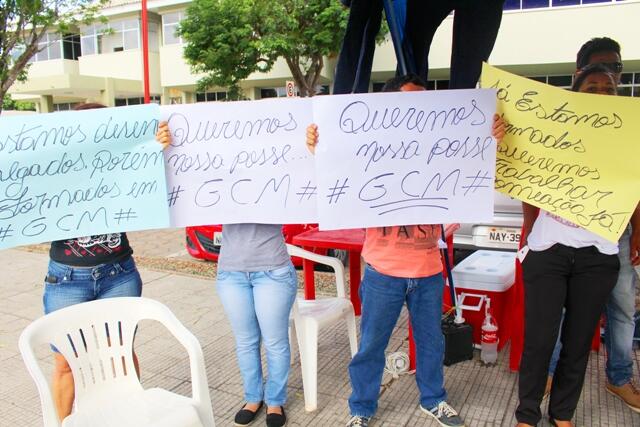 Estamos desem
pregados, porém
formados em
# GCM #
Queremos
nossa posse...
# GCM #
Queremos
nossa posse
# GCM #
Já Estamos
formados
Queremos
Trabalhar
nomeação Já!
NAY